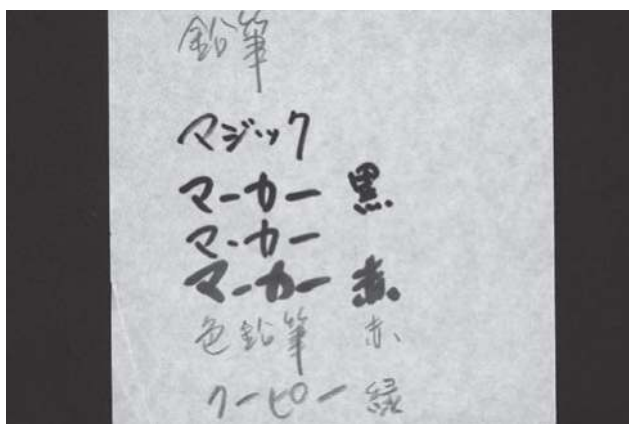 鉛筆
マジック
マーカー 黒
マーカー
マーカー 赤
色鉛筆 赤
クーピー 緑